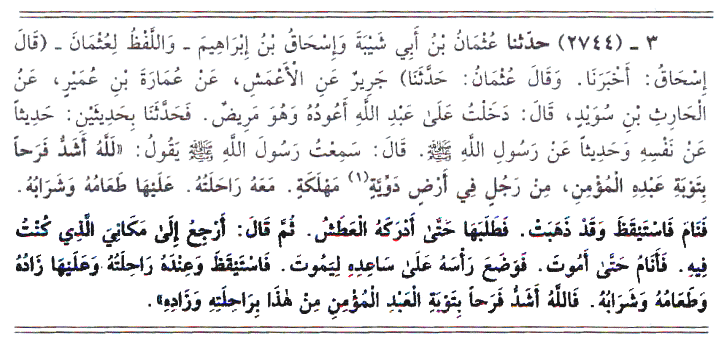 ٣ ـ (٢٧٤٤) حدثنا عُثْمَانُ بْنُ أَبِي شَيْبَةَ وَإِسْحَاقُ بْنُ إِبْرَاهِيمَ ـ وَاللَّفْظُ لِعُثْمَانَ ـ (قَالَ
إِسْحَاقُ: أَخْبَرَنَا. وَقَالَ عُثْمَانُ: حَدَّثَنَا) جَرِيرٌ عَنِ الْأَعْمَشِ، عَنْ عُمَارَةَ بْنِ عُمَيْرٍ، عَنْ
الْحَارِثِ بْنِ سُوَيْدٍ، قَالَ: دَخَلْتُ عَلَىٰ عَبْدِ اللَّهِ أَعُودُهُ وَهُوَ مَرِيضٌ. فَحَدَّثَنَا بِحَدِيثَيْنِ: حَدِيثاً
عَنْ نَفْسِهِ وَحَدِيثاً عَنْ رَسُولِ اللَّهِ ﷺ. قَالَ: سَمِعْتُ رَسُولَ اللَّهِ ﷺ يَقُولُ: «لَلَّهُ أَشَدُّ فَرَحاً
بِتَوْبَةِ عَبْدِهِ الْمُؤْمِنِ، مِنْ رَجُلٍ فِي أَرْضٍ دَوِّيَّةٍ(١) مَهْلَكَةٍ. مَعَهُ رَاحِلَتُهُ. عَلَيْهَا طَعَامُهُ وَشَرَابُهُ.
فَنَامَ فَاسْتَيْقَظَ وَقَدْ ذَهَبَتْ. فَطَلَبَهَا حَتَّىٰ أَدْرَكَهُ الْعَطَشُ. ثُمَّ قَالَ: أَرْجِعُ إِلَىٰ مَكَانِيَ الَّذِي كُنْتُ
فِيهِ. فَأَنَامُ حَتَّىٰ أَمُوتَ. فَوَضَعَ رَأْسَهُ عَلَىٰ سَاعِدِهِ لِيَمُوتَ. فَاسْتَيْقَظَ وَعِنْدَهُ رَاحِلَتُهُ وَعَلَيْهَا زَادُهُ
وَطَعَامُهُ وَشَرَابُهُ. فَاللَّهُ أَشَدُّ فَرَحاً بِتَوْبَةِ الْعَبْدِ الْمُؤْمِنِ مِنْ هَٰذَا بِرَاحِلَتِهِ وَزَادِهِ».